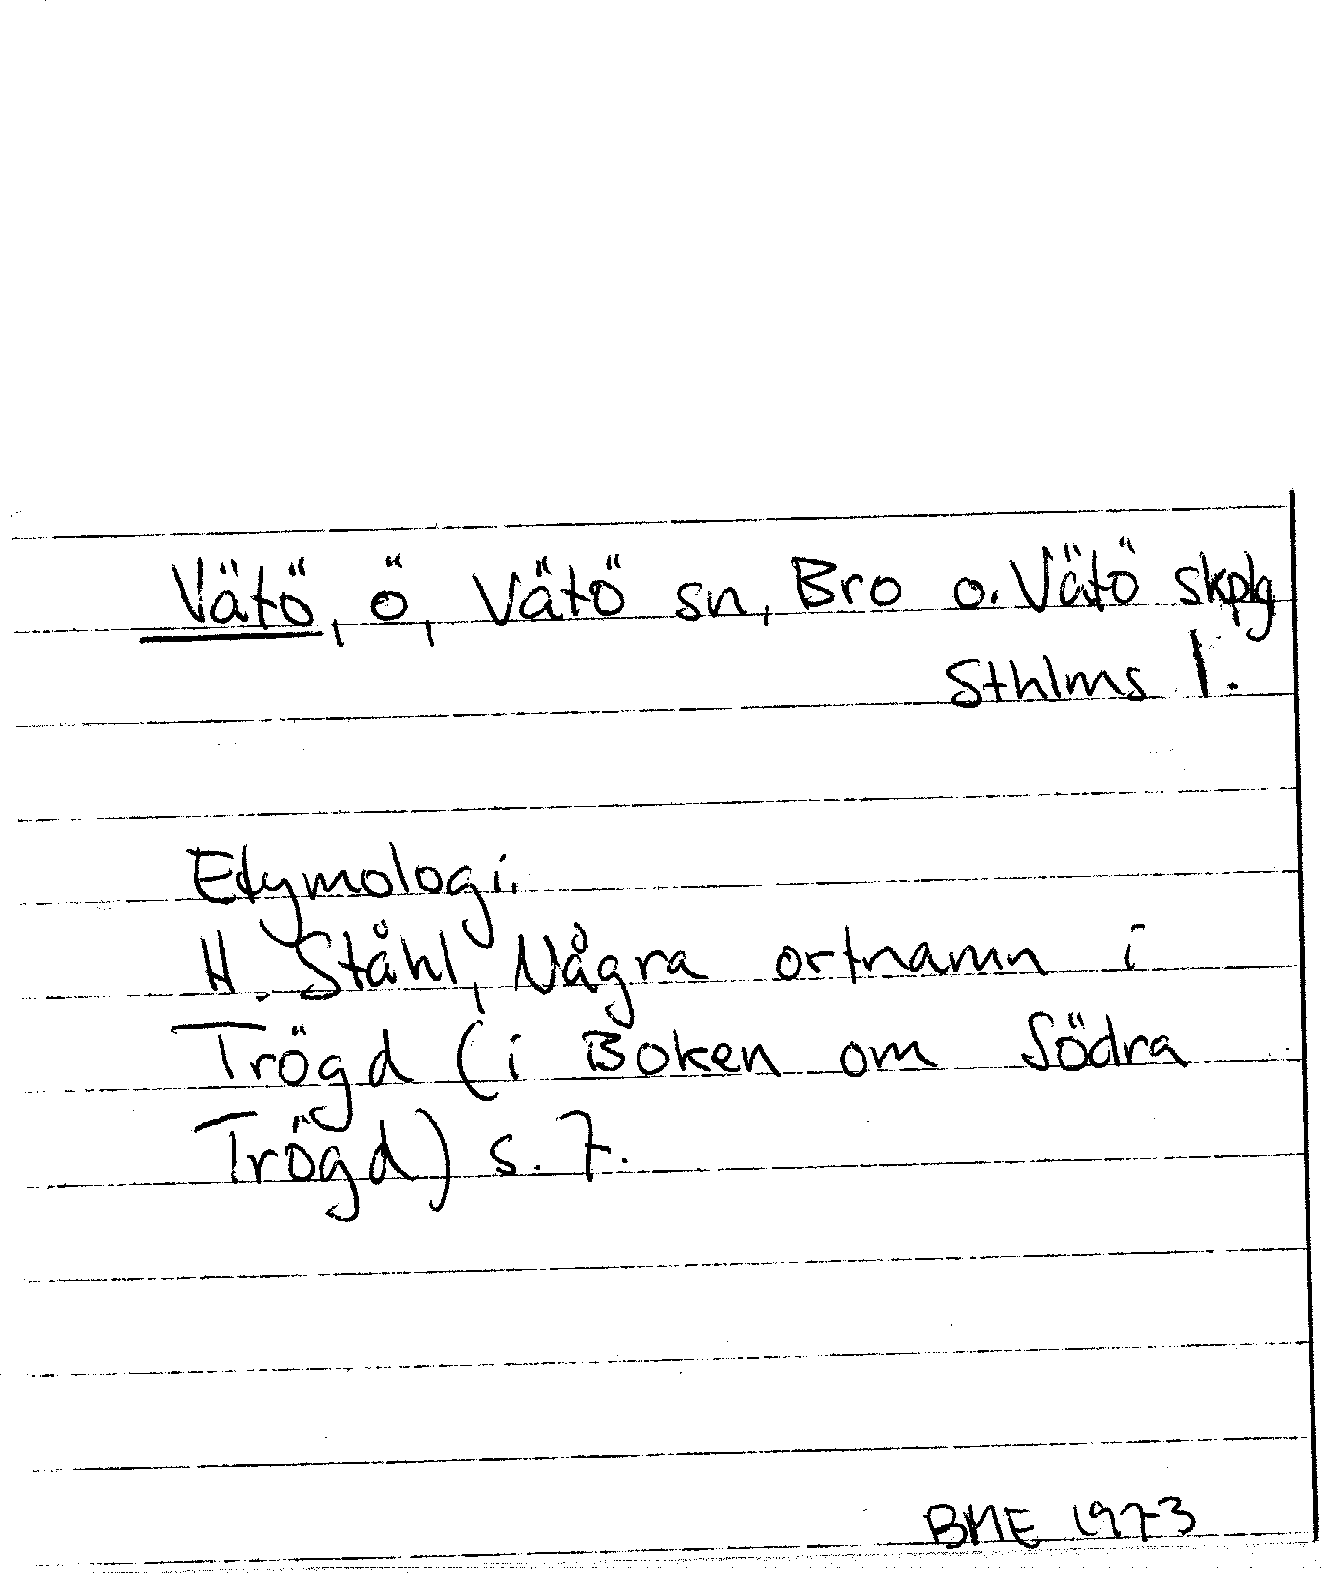 Vätö, ö, Vätö sn, Bro o. Vätö skplg
Sthlms l.
Etymologi.
H. Ståhl, Några ortnamn i
Trögd (i Boken om Södra
Trögd) s. 7.
BME 1973